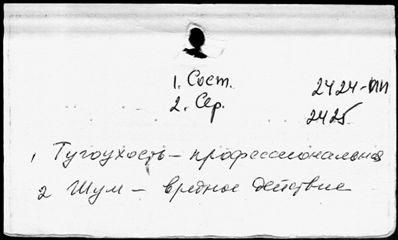 1. Сост.
2. Сер.
2424-МП
2425
1 Тугоухость – профессиональная
2 Шум – вредное действие